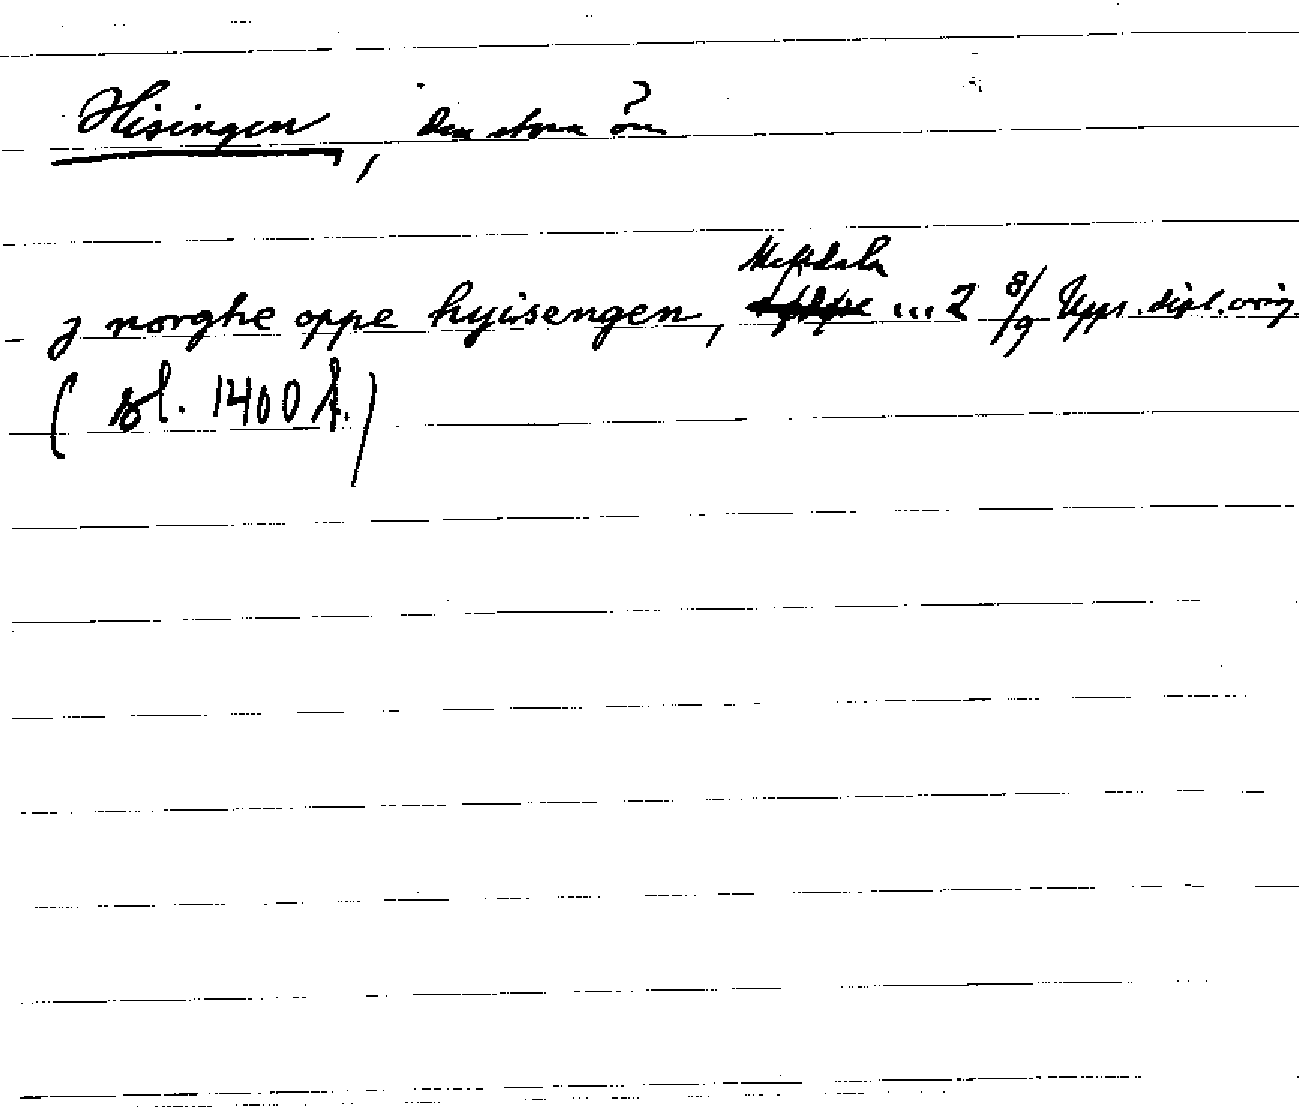 Hisingen, den stora ön ?
j norghe oppe hyisengen, ... 2 8/9 Upps. dipl. orig.
( sl. 1400 t. )